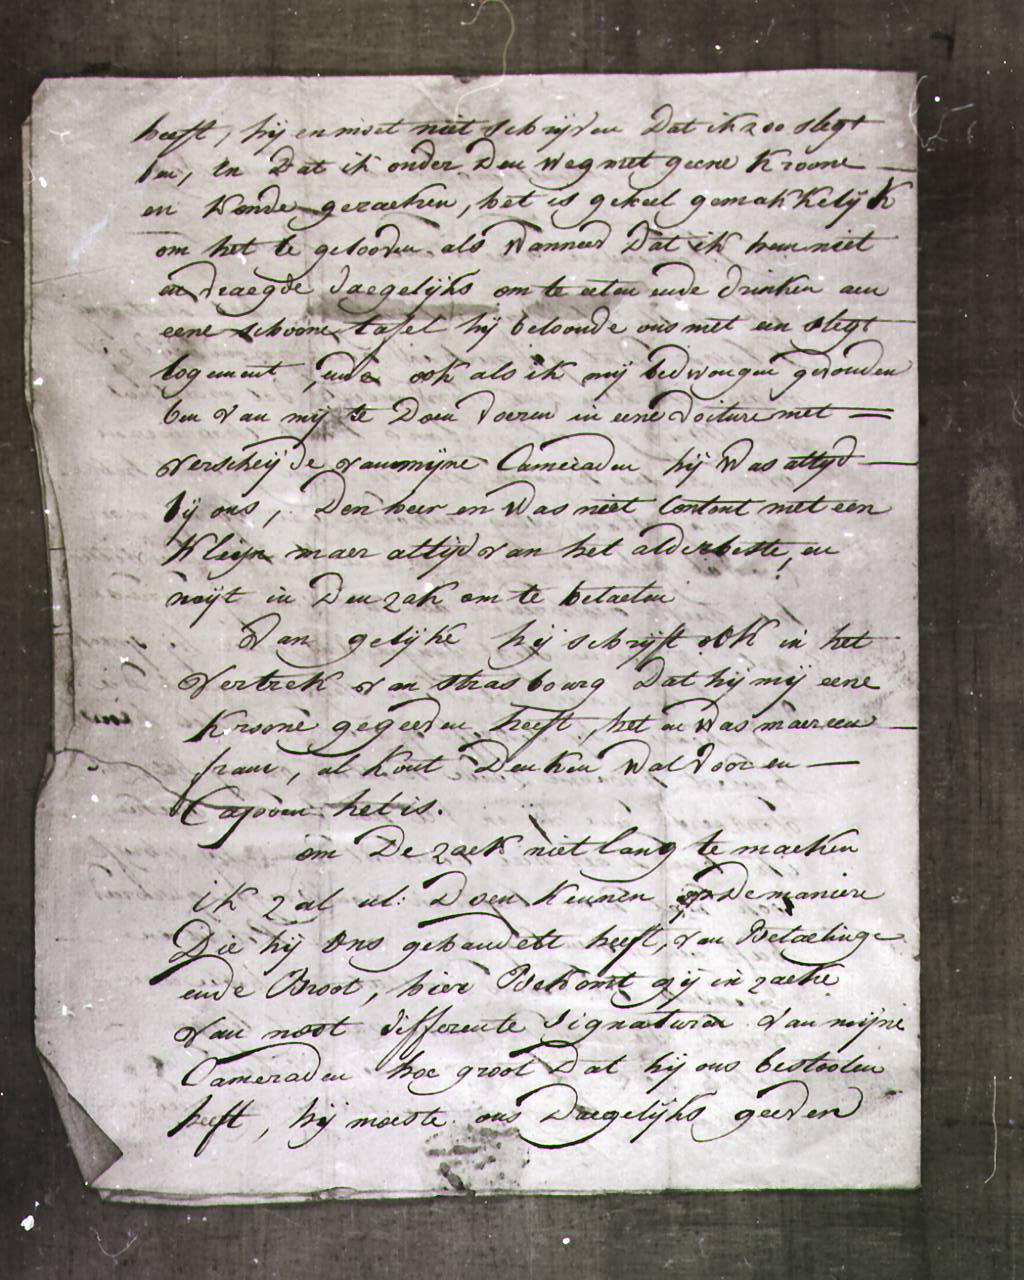 heeft, hij en moet niet schrijven Dat ik zoo slegt
ben, en Dat ik onder Den weg met geene Kroone
en Konde geraeken, het is geheel gemakkelijk
om het te gelooven als Wanneer Dat ik hem niet
en vraegde daegelijks om te eeten ende drinken aen
eene schoone tafel hij beloonde ons met een slegt
logement, ende ook als ik mij bedwongen gevonden
ben van mij te Doen voeren in eene voiture met
verscheijde van mijne Cameraden hij Was altyd
bij ons, Den heer en Was niet Content met een
Kleijn maer altijd van het alderbeste, en
noijt in Den zak om te betaelen
Van gelijke hij schrijft ook in het
Vertrek van strasbourg Dat hij mij eene
Kroone gegeeven heeft, het en Was maer een
franc, al kont Denken Wat voor en
Capoen het is.
om De zaek niet lang te maeken
ik zal ul: Doen kennen op De maniere
Die hij ons gehandelt heeft, van Betaelinge
ende Broot, hier Bekomt gij in zaeke
van noot differente signaturen van mijne
Cameraden hoe groot Dat hij ons bestoolen
heeft, hij moeste ons Daegelijks geeven